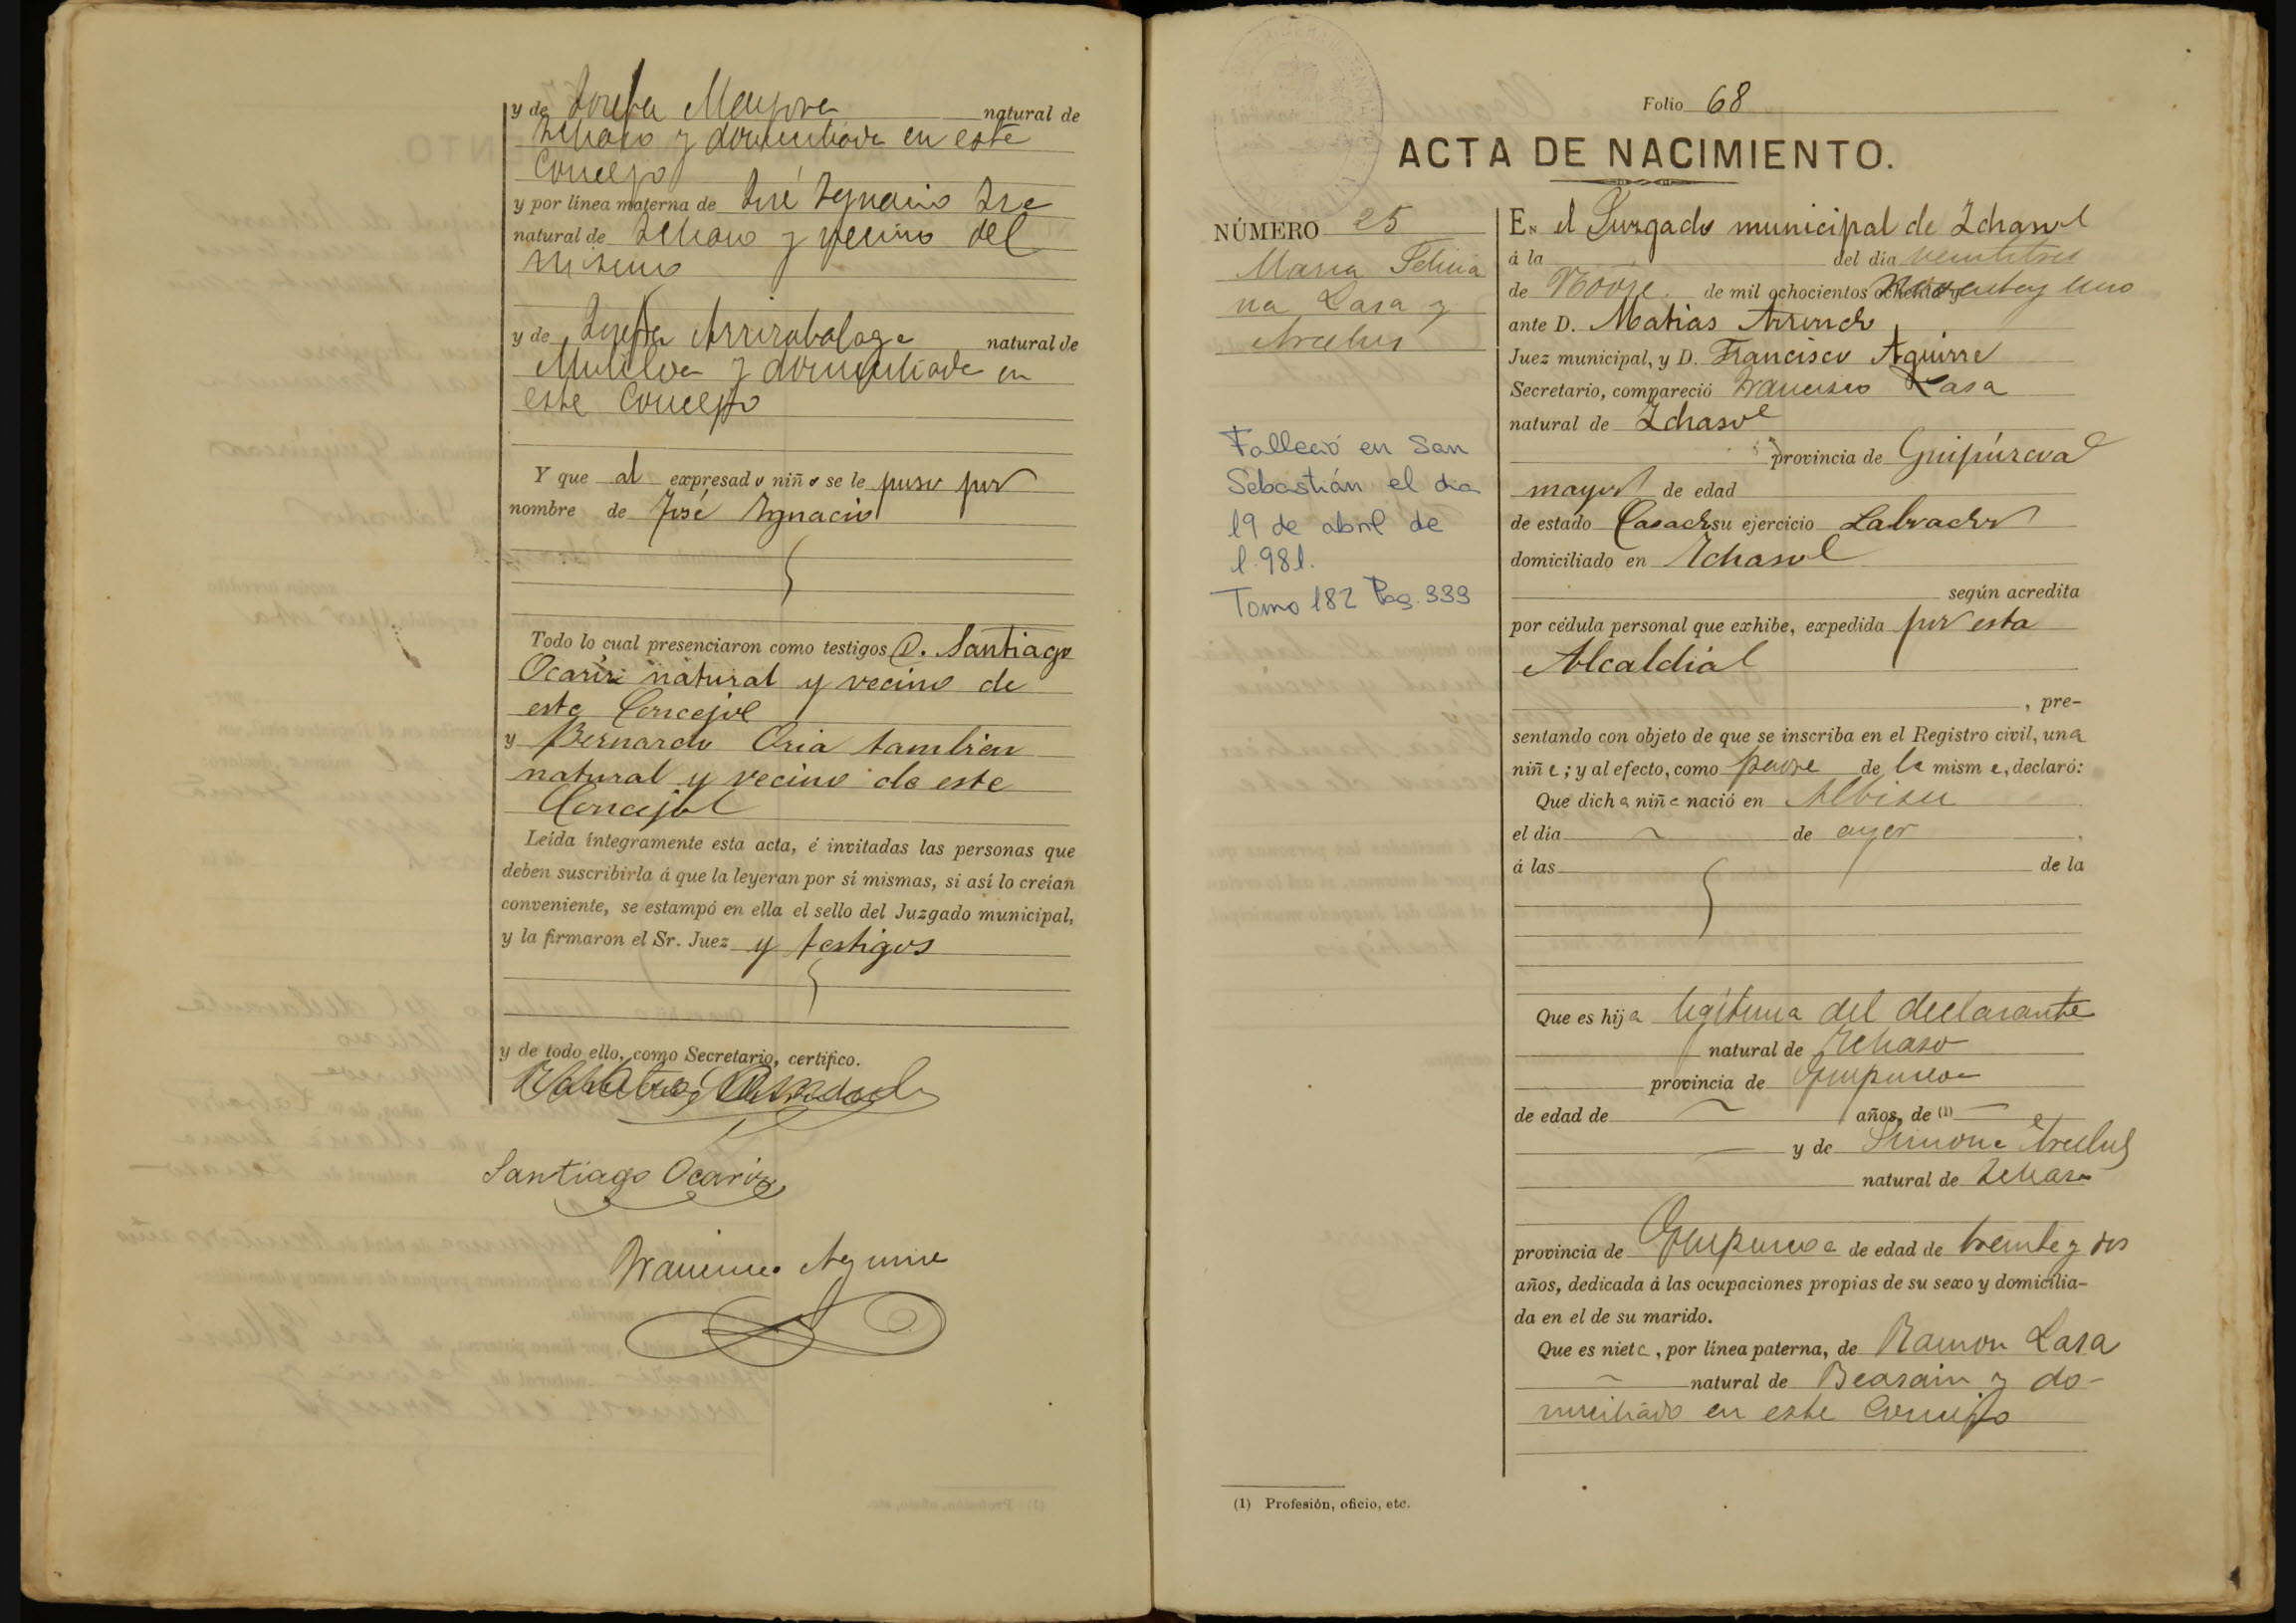 y de Josefa Mayora natural de
Ichaso y domiciliada en este
Concejo
y por línea materna de José Ygnacio
natural de Ichaso y vecino del
mismo
y de Josefa Arrizabalaga natural de
Mutiloa y domiciliada en
este Concejo
Y que al expresado niño se le puso por
nombre de José Ygnacio
Todo lo cual presenciaron como testigos D. Santiago
Ocariz natural y vecino de
este Concejo
y Bernardo Oria tambien
natural y vecino de este
Concejo
Leída íntegramente esta acta, é invitadas las personas que
deben suscribirla á que la leyeran por sí mismas, si así lo creían
conveniente, se estampó en ella el sello del Juzgado municipal,
y la firmaron el Sr. Juez y testigos
y de todo ello, como Secretario, certifico.
Santiago Ocariz
Francisco Aguirre
Folio 68
ACTA DE NACIMIENTO.
NÚMERO 25
Maria Felicia
na Lasa y
Arcelus
Falleció en San
Sebastián el dia
19 de abril de
1.981.
Tomo 182 Pag. 333
En el Juzgado municipal de Ichaso
á la del día veintitres
de Novre. de mil ochocientos ochenta y noventa y uno
ante D. Matias
Juez municipal, y D. Francisco Aguirre
Secretario, compareció Francisco Lasa
natural de Ichaso
provincia de Guipúzcoa
mayor de edad
de estado Casado su ejercicio Labrador
domiciliado en Ichaso
según acredita
por cédula personal que exhibe, expedida por esta
Alcaldia
, pre-
sentando con objeto de que se inscriba en el Registro civil, una
niña; y al efecto, como padre de la misma, declaró:
Que dicha niña nació en Albisu
el día de ayer
á las de la
Que es hija legitima del declarante
natural de Ichaso
provincia de Guipuzcoa
de edad de años, de (1)
y de Simona Arcelus
natural de Ichaso
provincia de Guipuzcoa de edad de treinta y dos
años, dedicada á las ocupaciones propias de su sexo y domicilia-
da en el de su marido.
Que es nieta, por línea paterna, de Ramon Lasa
natural de Beasain y do-
miciliado en este Concejo
(1) Profesión, oficio, etc.